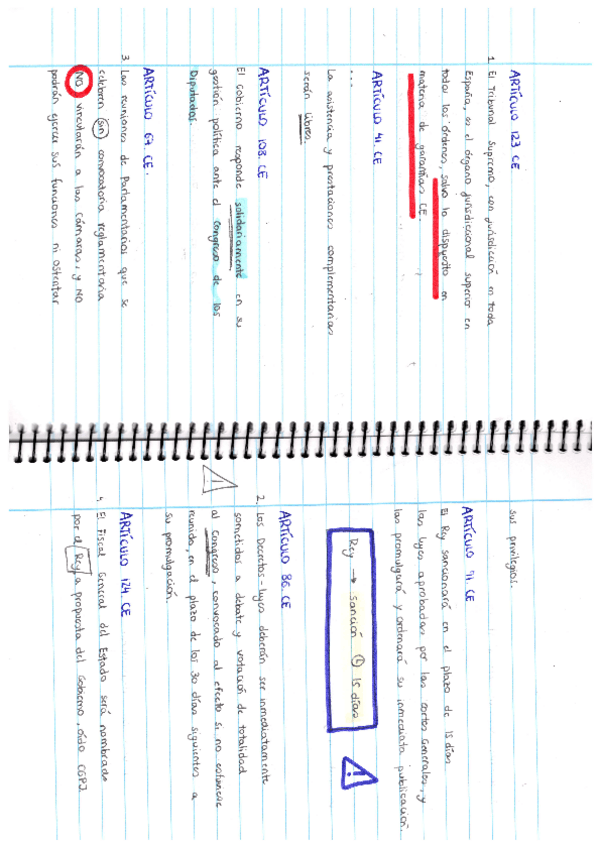 ARTÍCULO 123 CE
1. El Tribunal Supremo, con jurisdicción en toda
España, es el órgano jurisdiccional superior en
todos los órdenes, salvo lo dispuesto en
materia de garantías CE.
ARTÍCULO 41. CE
...
La asistencia y prestaciones complementarias
serán libres.
ARTÍCULO 108. CE
El Gobierno responde solidariamente en su
gestión política ante el Congreso de los
Diputados.
ARTÍCULO 67. CE.
3. Las reuniones de Parlamentarios que se
celebren sin convocatoria reglamentaria
NO vincularán a las Cámaras, y NO
podrán ejercer sus funciones ni ostentar
sus privilegios.
ARTÍCULO 91. CE
El Rey sancionará en el plazo de 15 días
las leyes aprobadas por las Cortes Generales, y
las promulgará y ordenará su inmediata publicación.
Rey → sanción 15 días
ARTÍCULO 86. CE
2. Los Decretos-leyes deberán ser inmediatamente
sometidos a debate y votación de totalidad
al Congreso, convocado al efecto si no estuviese
reunido, en el plazo de los 30 días siguientes a
su promulgación.
ARTÍCULO 124. CE
4. El Fiscal General del Estado será nombrado
por el Rey, a propuesta del Gobierno, oído CGPJ.